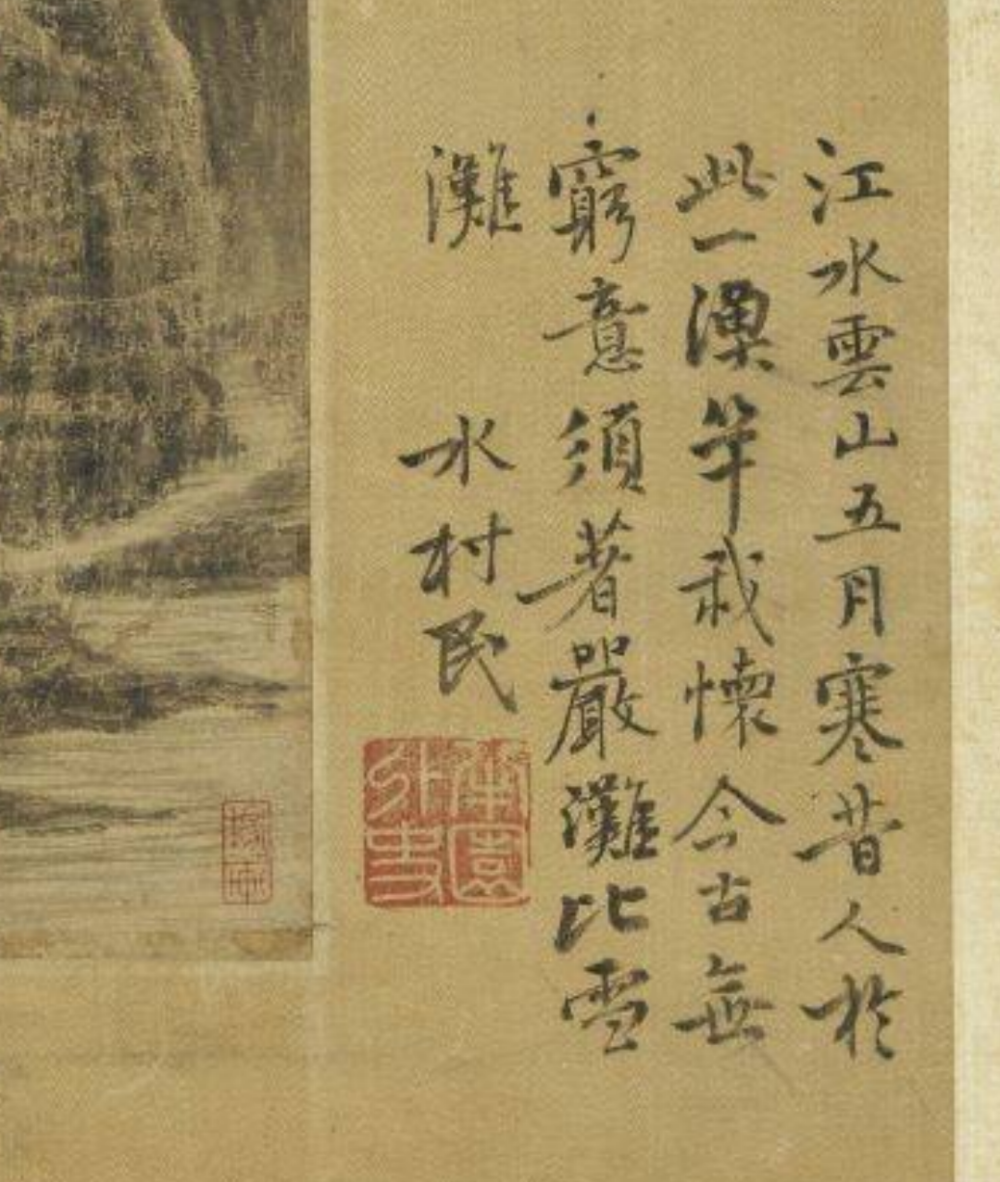 江水雲山五月寒昔人於
此一漁竿我懷今古無
窮意須著嚴灘比雪
灘
水村民
南園
外史